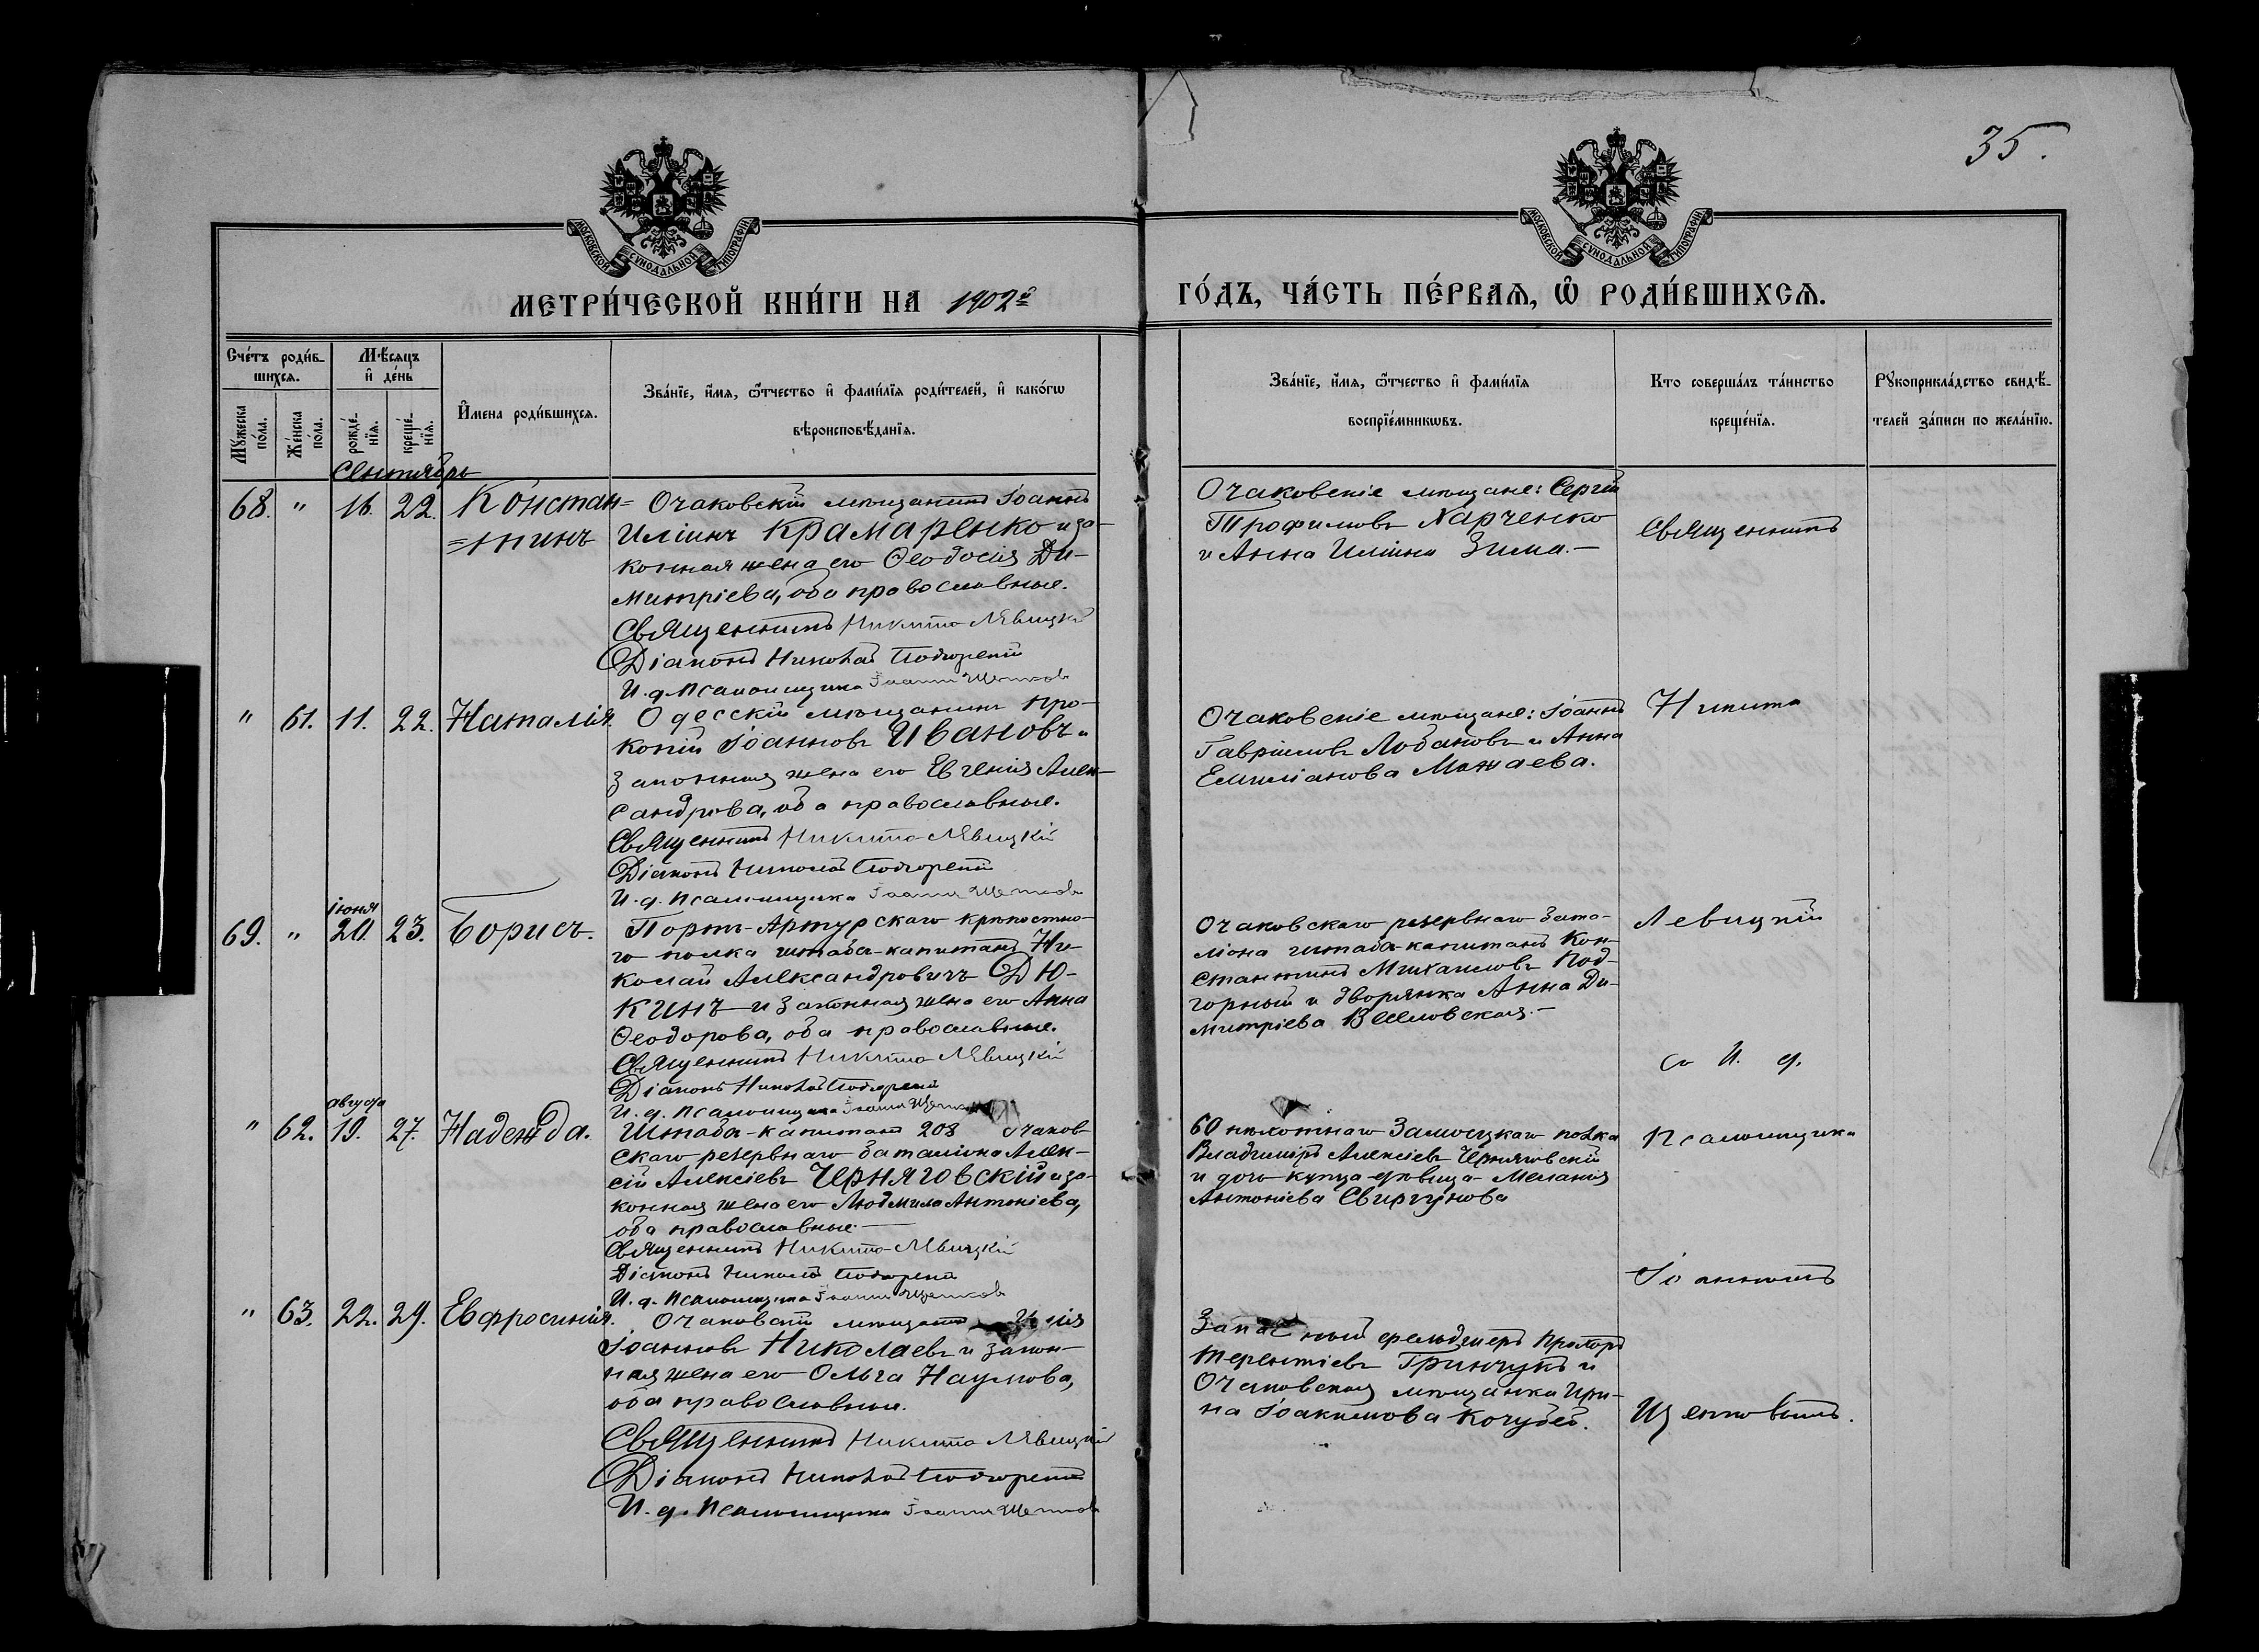 35.
МОСКОВСКОЙ СѴНОДАЛЬНОЙ ТИПОГРАФІИ
МОСКОВСКОЙ СѴНОДАЛЬНОЙ ТИПОГРАФІИ
МЕТРИ́ЧЕСКОЙ КНИ́ГИ НА 1902й
ГО́ДЪ, ЧА́СТЬ ПЕ́РВАѦ, Ѡ҆ РОДИ́ВШИХСѦ.
Сче́тъ роди́в-
шихсѧ.
Мѣ́сѧцъ
и҆ де́нь
Мꙋ́жеска по́ла.
Же́нска по́ла.
рожде́-
нїѧ.
креще́-
нїѧ.
И҆мена роди́вшихсѧ.
Зва́нїе, и҆́мѧ, ѻ҆́тчество и҆ фами́лїѧ роди́телей, и҆ како́гѡ
вѣроисповѣ́данїѧ.
Зва́нїе, и҆́мѧ, ѻ҆́тчество и҆ фами́лїѧ
воспрїе́мникѡвъ.
Кто соверша́лъ та́инство
креще́нїѧ.
Рꙋкоприкла́дство свидѣ́-
телей за́писи по жела́нїю.
Сентябрь
68. " 16. 22. Констан=
=тинъ
Очаковскій мѣщанинъ Іоаннъ
Иліинъ Крамаренко и за-
конная жена его Ѳеодосія Ди-
митріева, оба православные.
Священникъ Никита Левицкій
Діаконъ Николай Подгорскій
И. д. псаломщика Іоаннъ Щетковъ
Очаковскіе мѣщане: Сергій
Трофимовъ Харченко
и Анна Иліина Зима.—
Священникъ
" 61. 11. 22. Наталія.
Одесскій мѣщанинъ Про-
копій Іоанновъ Ивановъ и
законная жена его Евгенія Алек-
сандрова, оба православные.
Священникъ Никита Левицкій
Діаконъ Николай Подгорскій
И. д. псаломщика Іоаннъ Щетковъ
Очаковскіе мѣщане: Іоаннъ
Гавріиловъ Лобановъ и Анна
Емиліанова Можаева.
Никита
69. " іюня 20. 23. Борисъ.
Портъ-Артурскаго крѣпостно-
го полка штабсъ-капитанъ Ни-
колай Александровичъ Дю-
кинъ и законная жена его Анна
Ѳеодорова, оба православные.
Священникъ Никита Левицкій
Діаконъ Николай Подгорскій
И. д. псаломщика Іоаннъ
Очаковскаго резервнаго бата-
ліона штабсъ-капитанъ Кон-
стантинъ Михаиловъ Под-
горный и дворянка Анна Ди-
митріева
Левицкій
съ И. д.
" 62. августа 19. 27. Надежда.
Штабсъ-капитанъ 208 Очаков-
скаго резервнаго баталіона Алек-
сій Алексіевъ Черняговскій и за-
конная жена его Людмила Антоніева,
оба православные.—
Священникъ Никита Левицкій
Діаконъ Николай Подгорскій
И. д. псаломщика Іоаннъ Щетковъ
60 пѣхотнаго Замосцкаго полка
Владиміръ Алексіевъ Черняговскій
и дочь купца дѣвица Меланія
Антоніева Свиргунова
Псаломщика
Іоанномъ
" 63. 22. 29. Евфросинія.
Очаковскій мѣщанинъ Илія
Іоанновъ Николаевъ и закон-
ная жена его Ольга Наумова,
оба православные.
Священникъ Никита Левицкій
Діаконъ Николай Подгорскій
И. д. псаломщика Іоаннъ Щетковъ
Запасный фельдшеръ Прохоръ
Терентіевъ Гринчукъ и
Очаковская мѣщанка Ири-
на Іоакимова Кочубей.
Щетковымъ.